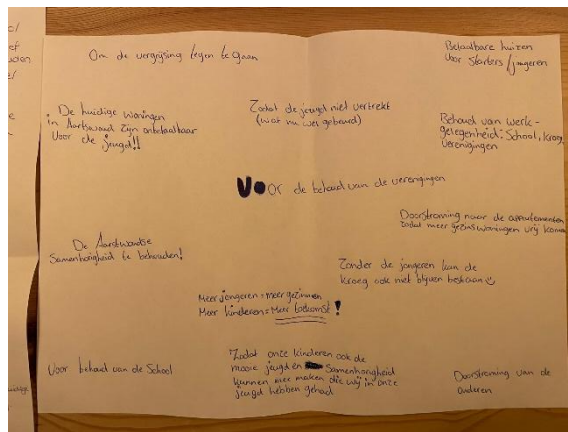 Om de vergrijsing tegen te gaan
Betaalbare huizen
voor starters/jongeren
De huidige woningen
in Aartswoud zijn onbetaalbaar
voor de jeugd!!
Zodat de jeugd niet vertrekt
(wat nu wel gebeurd)
Behoud van werk-
gelegenheid: School, kroeg,
Verenigingen
VOOr de behoud van de verenigingen
Doorstroming naar de appartementen
zodat meer gezinswoningen vrij komen
De Aartswoudse
Samenhorigheid te behouden!
Zonder de jongeren kan de
kroeg ook niet blijven bestaan
Meer jongeren = meer gezinnen
Meer kinderen = Meer toekomst!
Voor behoud van de School
Zodat onze kinderen ook de
mooie jeugd en Samenhorigheid
kunnen mee maken die wij in onze
jeugd hebben gehad
Doorstroming van de
ouderen